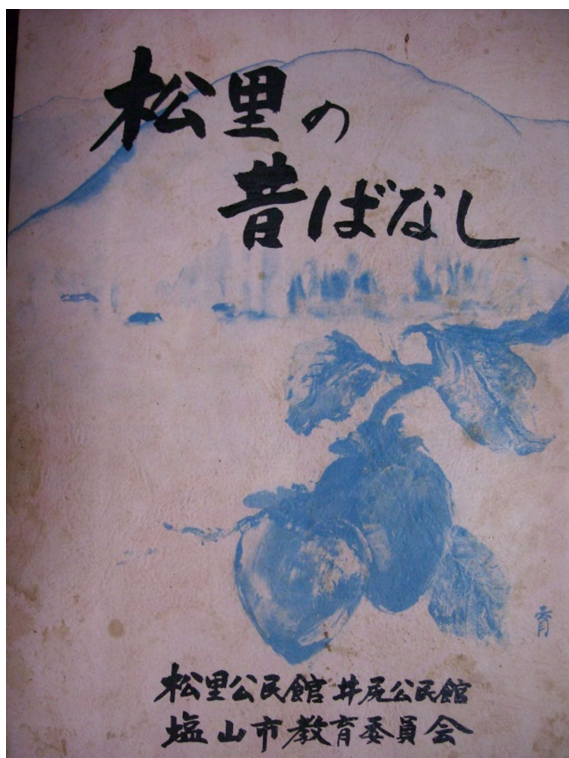 松里の
昔ばなし
松里公民館 井尻公民館
塩山市教育委員会